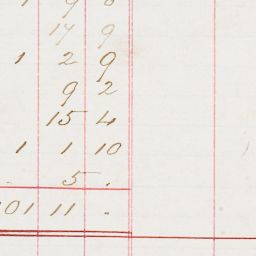 17 9
1 2 9
9 2
15 4
1 1 10
. 5 .
01 11 .